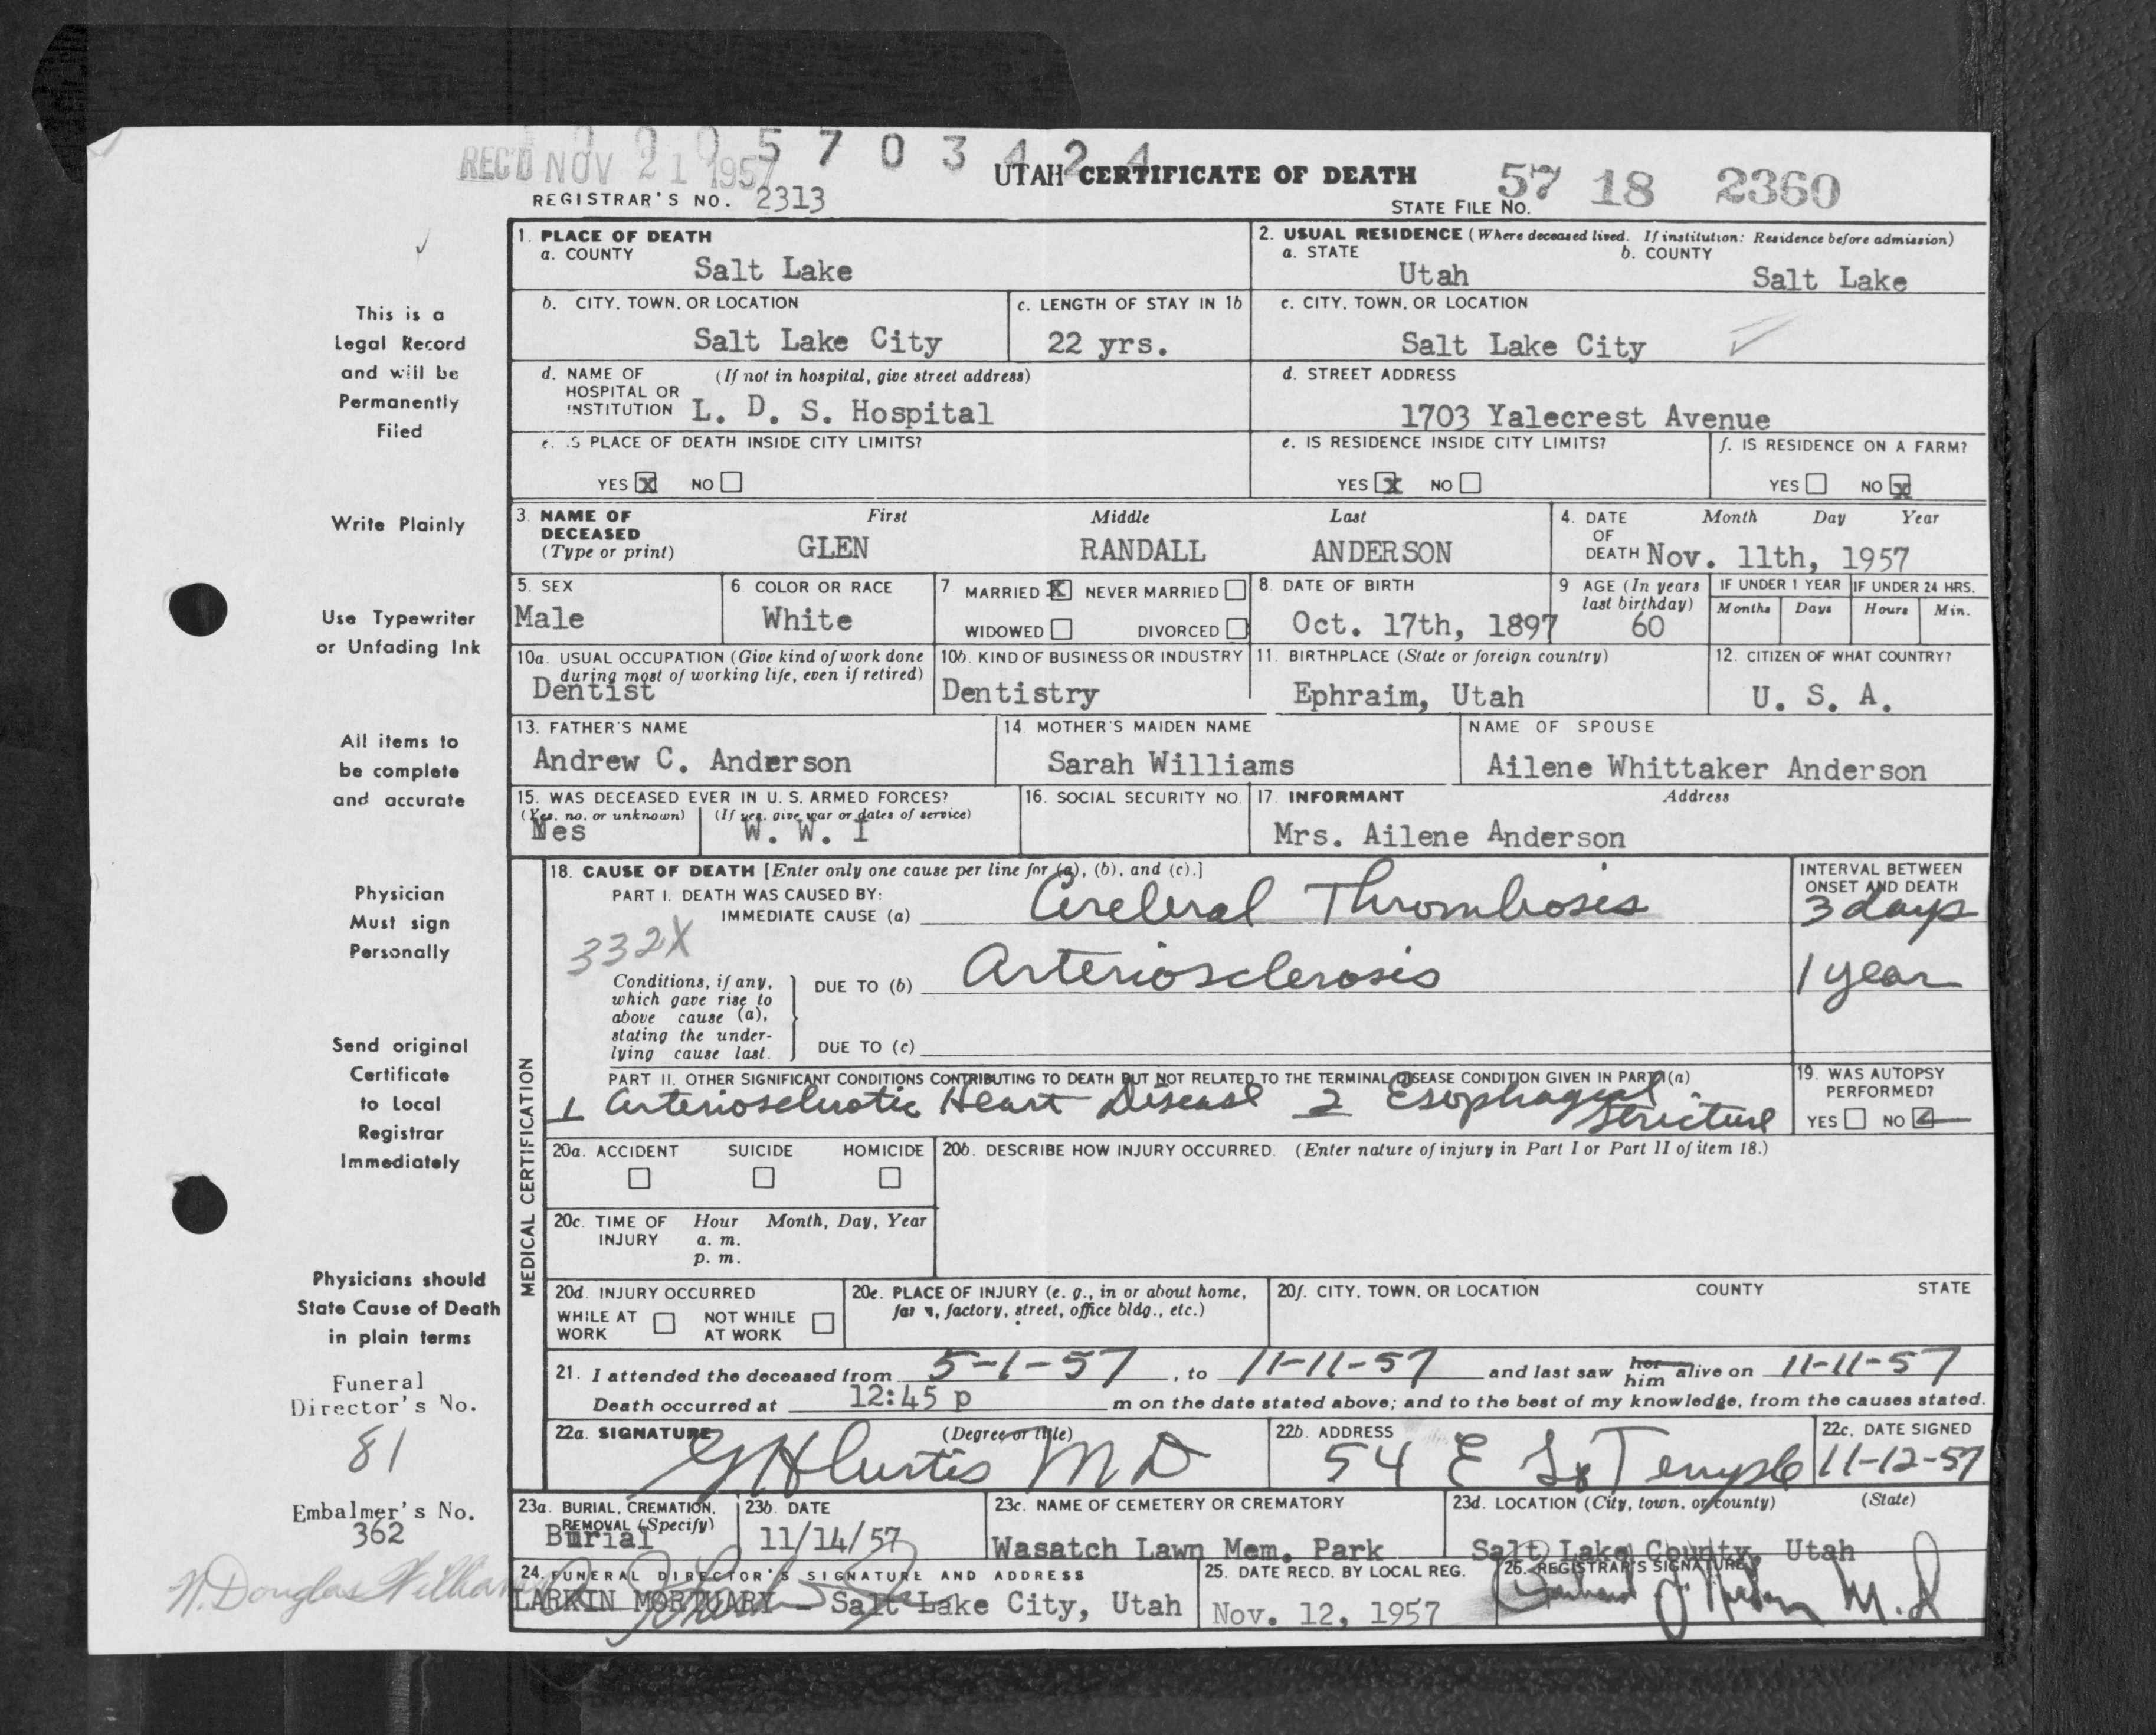 5 7 0 3 4 2 4
REC'D NOV 21 1957
UTAH CERTIFICATE OF DEATH
REGISTRAR'S NO. 2313
STATE FILE NO. 57 18 2360
This is a
Legal Record
and will be
Permanently
Filed
Write Plainly
Use Typewriter
or Unfading Ink
All items to
be complete
and accurate
Physician
Must sign
Personally
Send original
Certificate
to Local
Registrar
Immediately
Physicians should
State Cause of Death
in plain terms
Funeral
Director's No.
81
Embalmer's No.
362
N. Douglas
1. PLACE OF DEATH
a. COUNTY
Salt Lake
2. USUAL RESIDENCE (Where deceased lived. If institution: Residence before admission)
a. STATE
Utah
b. COUNTY
Salt Lake
b. CITY, TOWN, OR LOCATION
Salt Lake City
c. LENGTH OF STAY IN 1b
22 yrs.
c. CITY, TOWN, OR LOCATION
Salt Lake City
d. NAME OF (If not in hospital, give street address)
HOSPITAL OR
INSTITUTION L. D. S. Hospital
d. STREET ADDRESS
1703 Yalecrest Avenue
e. IS PLACE OF DEATH INSIDE CITY LIMITS?
YES X NO
e. IS RESIDENCE INSIDE CITY LIMITS?
YES X NO
f. IS RESIDENCE ON A FARM?
YES NO X
3. NAME OF
DECEASED
(Type or print)
First Middle Last
GLEN RANDALL ANDERSON
4. DATE Month Day Year
OF
DEATH Nov. 11th, 1957
5. SEX
Male
6. COLOR OR RACE
White
7 MARRIED X NEVER MARRIED
WIDOWED DIVORCED
8. DATE OF BIRTH
Oct. 17th, 1897
9 AGE (In years
last birthday)
60
IF UNDER 1 YEAR
Months Days
IF UNDER 24 HRS.
Hours Min.
10a. USUAL OCCUPATION (Give kind of work done
during most of working life, even if retired)
Dentist
10b. KIND OF BUSINESS OR INDUSTRY
Dentistry
11. BIRTHPLACE (State or foreign country)
Ephraim, Utah
12. CITIZEN OF WHAT COUNTRY?
U. S. A.
13. FATHER'S NAME
Andrew C. Anderson
14. MOTHER'S MAIDEN NAME
Sarah Williams
NAME OF SPOUSE
Ailene Whittaker Anderson
15. WAS DECEASED EVER IN U. S. ARMED FORCES?
(Yes, no, or unknown) (If yes, give war or dates of service)
Yes W. W. I
16. SOCIAL SECURITY NO.
17. INFORMANT Address
Mrs. Ailene Anderson
MEDICAL CERTIFICATION
18. CAUSE OF DEATH [Enter only one cause per line for (a), (b), and (c).]
PART I. DEATH WAS CAUSED BY:
IMMEDIATE CAUSE (a) Cerebral Thrombosis
INTERVAL BETWEEN
ONSET AND DEATH
3 days
332X
Conditions, if any,
which gave rise to
above cause (a),
stating the under-
lying cause last.
DUE TO (b) Arteriosclerosis
1 year
DUE TO (c)
PART II. OTHER SIGNIFICANT CONDITIONS CONTRIBUTING TO DEATH BUT NOT RELATED TO THE TERMINAL DISEASE CONDITION GIVEN IN PART I(a)
1 Arteriosclerotic Heart Disease 2 Esophageal
Stricture
19. WAS AUTOPSY
PERFORMED?
YES NO
20a. ACCIDENT SUICIDE HOMICIDE
20b. DESCRIBE HOW INJURY OCCURRED. (Enter nature of injury in Part I or Part II of item 18.)
20c. TIME OF Hour Month, Day, Year
INJURY a. m.
p. m.
20d. INJURY OCCURRED
WHILE AT NOT WHILE
WORK AT WORK
20e. PLACE OF INJURY (e. g., in or about home,
farm, factory, street, office bldg., etc.)
20f. CITY, TOWN, OR LOCATION COUNTY STATE
21. I attended the deceased from 5-1-57, to 11-11-57 and last saw her him alive on 11-11-57
Death occurred at 12:45 p m on the date stated above; and to the best of my knowledge, from the causes stated.
22a. SIGNATURE (Degree or title)
G H Curtis M D
22b. ADDRESS
54 E So Temple
22c. DATE SIGNED
11-12-57
23a. BURIAL, CREMATION,
REMOVAL (Specify)
Burial
23b. DATE
11/14/57
23c. NAME OF CEMETERY OR CREMATORY
Wasatch Lawn Mem. Park
23d. LOCATION (City, town, or county) (State)
Salt Lake County, Utah
24. FUNERAL DIRECTOR'S SIGNATURE AND ADDRESS
LARKIN MORTUARY - Salt Lake City, Utah
25. DATE RECD. BY LOCAL REG.
Nov. 12, 1957
26. REGISTRAR'S SIGNATURE
M.D